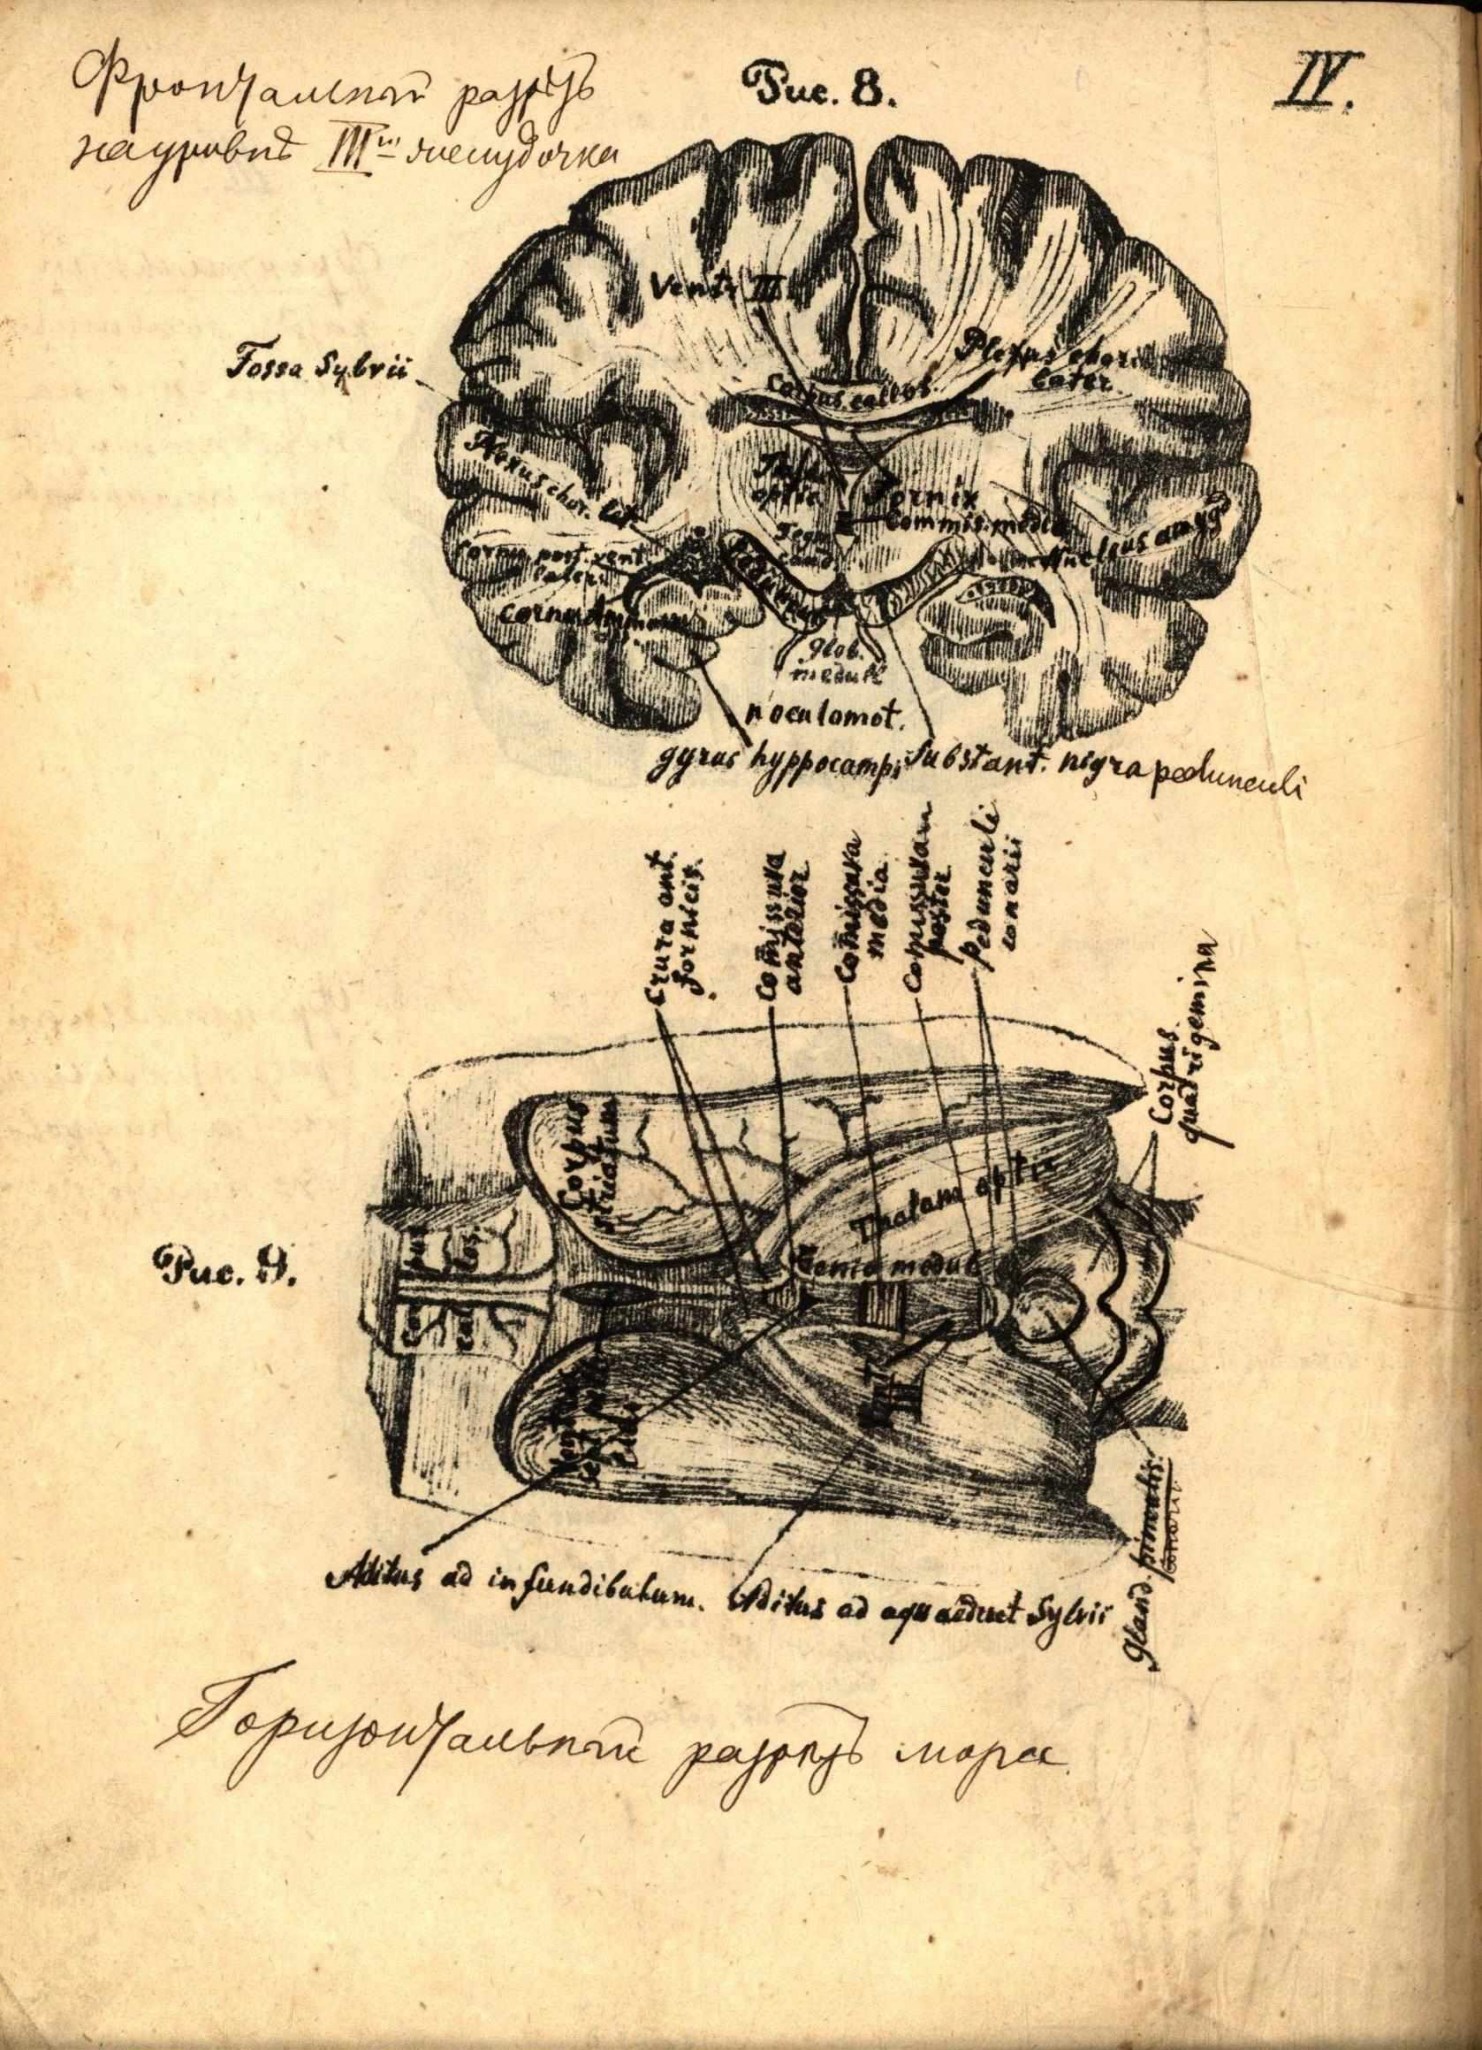 Фронтальный разрѣзъ
на уровнѣ IIIго желудочка
Рис. 8.
IV.
Ventr III.
Fossa Sylvii
Plexus chori
later.
Corpus callos.
Plexus chor. lat.
optic
Fornix
Commis. media
Nucleus amygd
Cornu post. vent
later.
Cornu Ammon
glob.
medull
n oculomot.
gyrus hyppocampi
Substant. nigra pedunculi
Crura ant.
fornicis.
Comissura
anterior
Comissura
media
Comissuram
poster.
Pedunculi
conarii
Corpus
quadrigemina
Corpus
striatum
Thalam optic
Рис. 9.
Corpus
callos.
Tenia medul
Ventr
III
Aditus ad infundibulum.
Aditus ad aquaeduct Sylvii
Gland. pinealis.
Горизонтальный разрѣзъ мозга